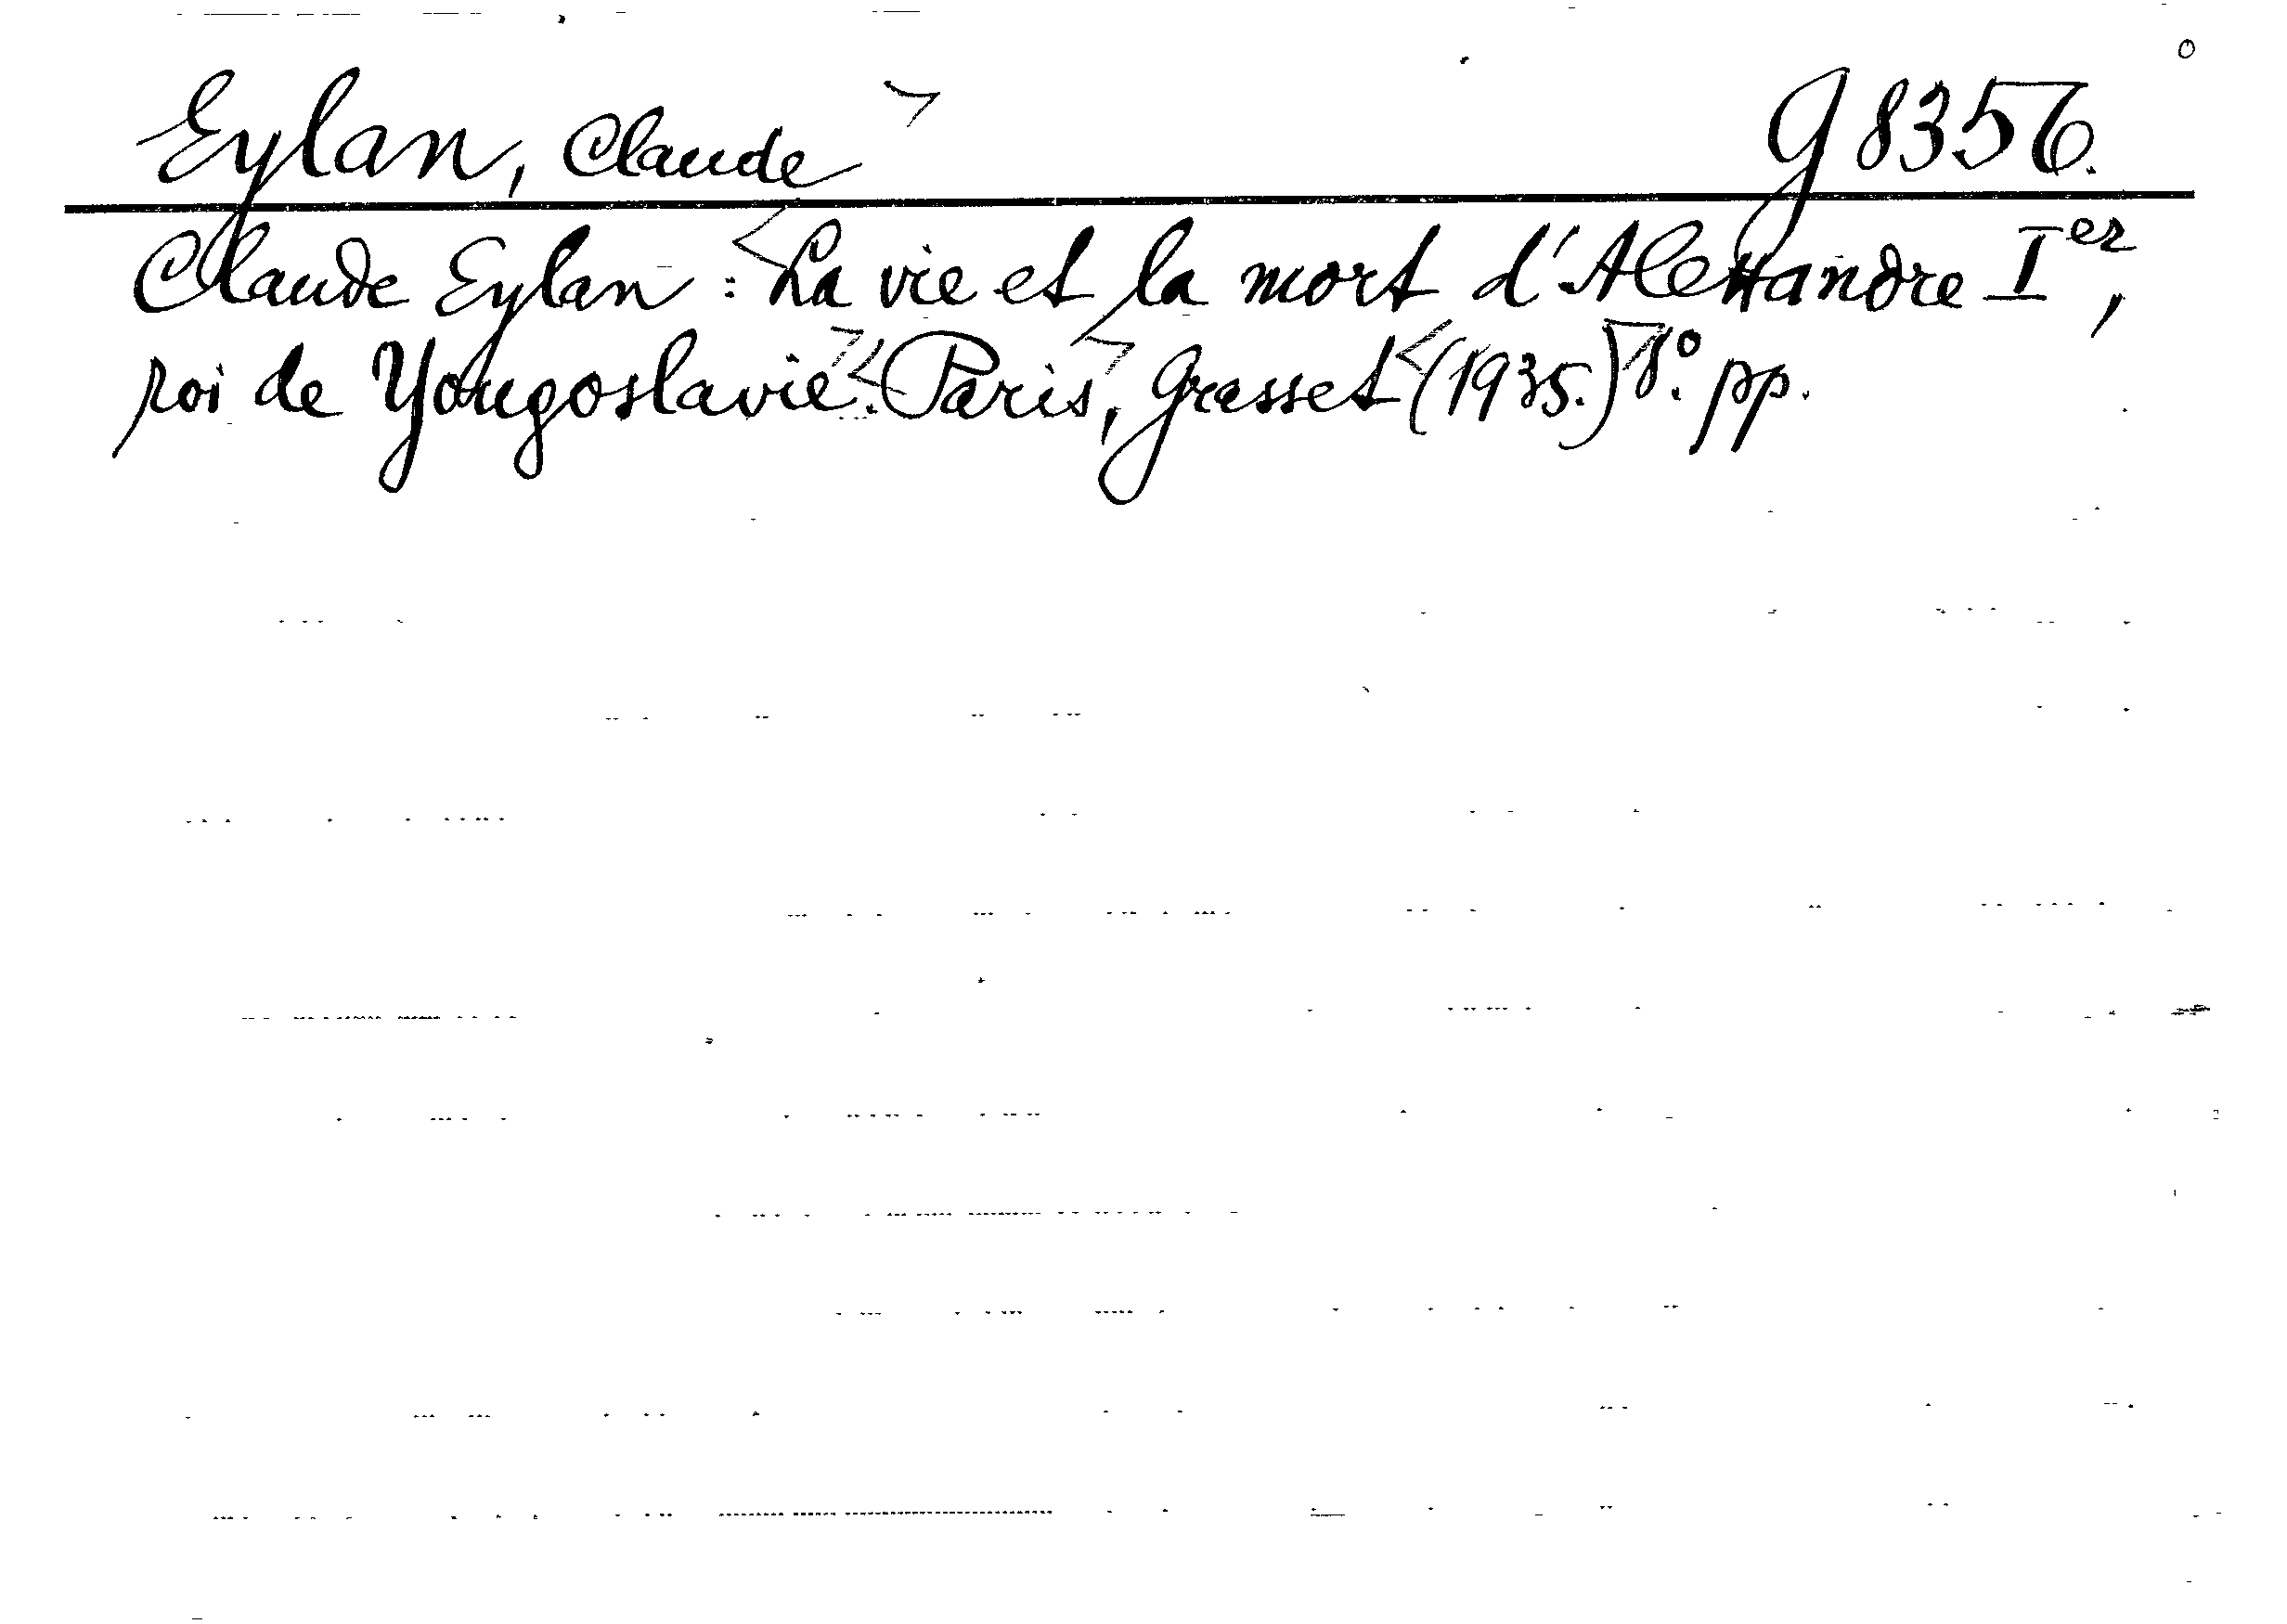 Eylan, Claude G 8356.
Claude Eylan: La vie et la mort d'Alexandre Ier,
roi de Yougoslavie. Paris, Grasset (1935.) 8°. pp.